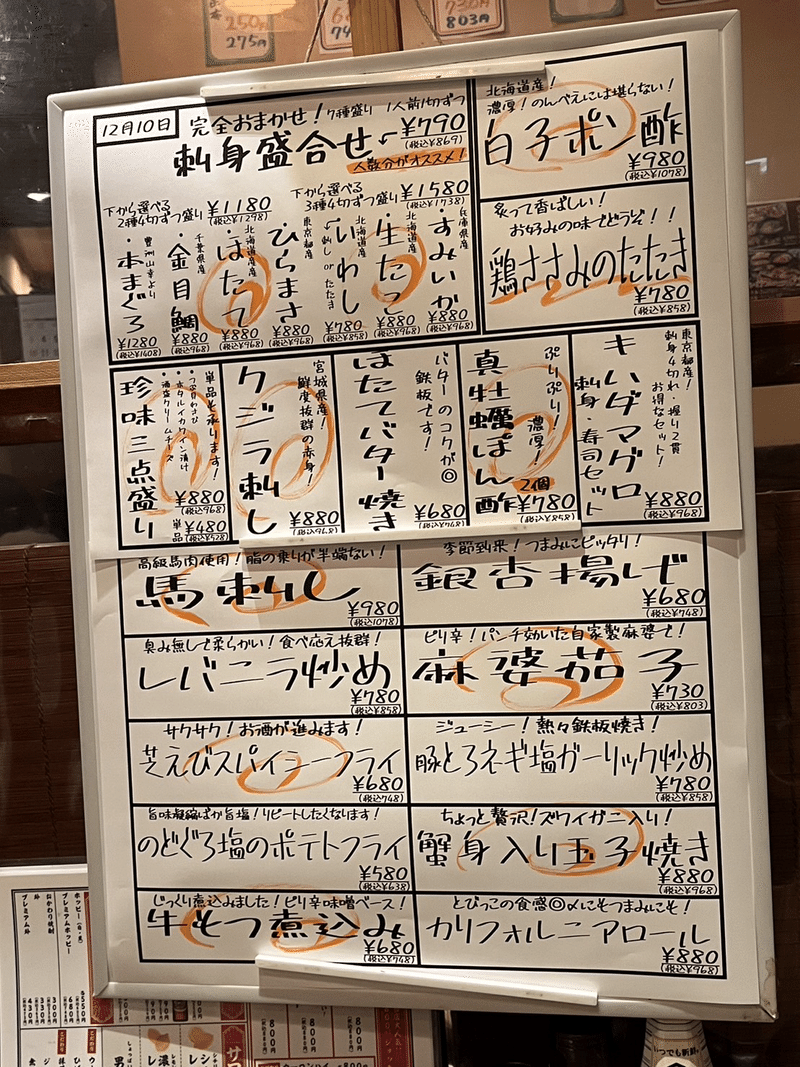 250円
275円
730円
803円
12月10日
完全おまかせ！7種盛り 1人前1切ずつ
刺身盛合せ ¥790
(税込¥869)
人数分がオススメ！
下から選べる
2種4切ずつ盛り ¥1180
(税込¥1298)
下から選べる
3種4切ずつ盛り ¥1580
(税込¥1738)
兵庫県産
・すみいか
¥880
(税込¥968)
北海道産
・生たこ
¥880
(税込¥968)
北海道産
・いわし
刺し or たたき
¥780
(税込¥858)
東京都産
・ひらまさ
¥880
(税込¥968)
北海道産
・ほたて
¥880
(税込¥968)
千葉県産
・金目鯛
¥880
(税込¥968)
豊洲山幸より
・本まぐろ
¥1280
(税込¥1408)
北海道産！
濃厚！のんべえには堪らない！
白子ポン酢
¥980
(税込¥1078)
炙って香ばしい！
お好みの味でどうぞ！！
鶏ささみのたたき
¥780
(税込¥858)
東京都産！
刺身4切れ・握り2貫
お得なセット！
キハダマグロ
刺身・寿司セット
¥880
(税込¥968)
ぷりぷり！
濃厚！
真牡蠣ぽん酢
2個
¥780
(税込¥858)
バターのコクが◎
鉄板です！
ほたてバター焼き
¥680
(税込¥748)
宮城県産！
鮮度抜群の赤身！
クジラ刺し
¥880
(税込¥968)
単品も承ります！
・つぶ貝わさび
・ホタルイカワイン漬け
・酒盗クリームチーズ
珍味三点盛り
¥880
(税込¥968)
単品 ¥480
(税込¥528)
高級馬肉使用！脂の乗りが半端ない！
馬刺し
¥980
(税込1078)
季節到来！つまみにピッタリ！
銀杏揚げ
¥680
(税込¥748)
臭み無しで柔らかい！食べ応え抜群！
レバニラ炒め
¥780
(税込¥858)
ピリ辛！パンチ効いた自家製麻婆で！
麻婆茄子
¥730
(税込¥803)
サクサク！お酒が進みます！
芝えびスパイシーフライ
¥680
(税込748)
ジューシー！熱々鉄板焼き！
豚とろネギ塩ガーリック炒め
¥780
(税込¥858)
旨味凝縮ばか旨塩！リピートしたくなります！
のどぐろ塩のポテトフライ
¥580
(税込¥638)
ちょっと贅沢！ズワイガニ入り！
蟹身入り玉子焼き
¥880
(税込¥968)
じっくり煮込みました！ピリ辛味噌ベース！
牛もつ煮込み
¥680
(税込¥748)
とびっこの食感◎〆にもつまみにも！
カリフォルニアロール
¥880
(税込¥968)
ホッピー
プレミアムホッピー
おかわり焼酎
外
プレミアム外
いつでも新鮮